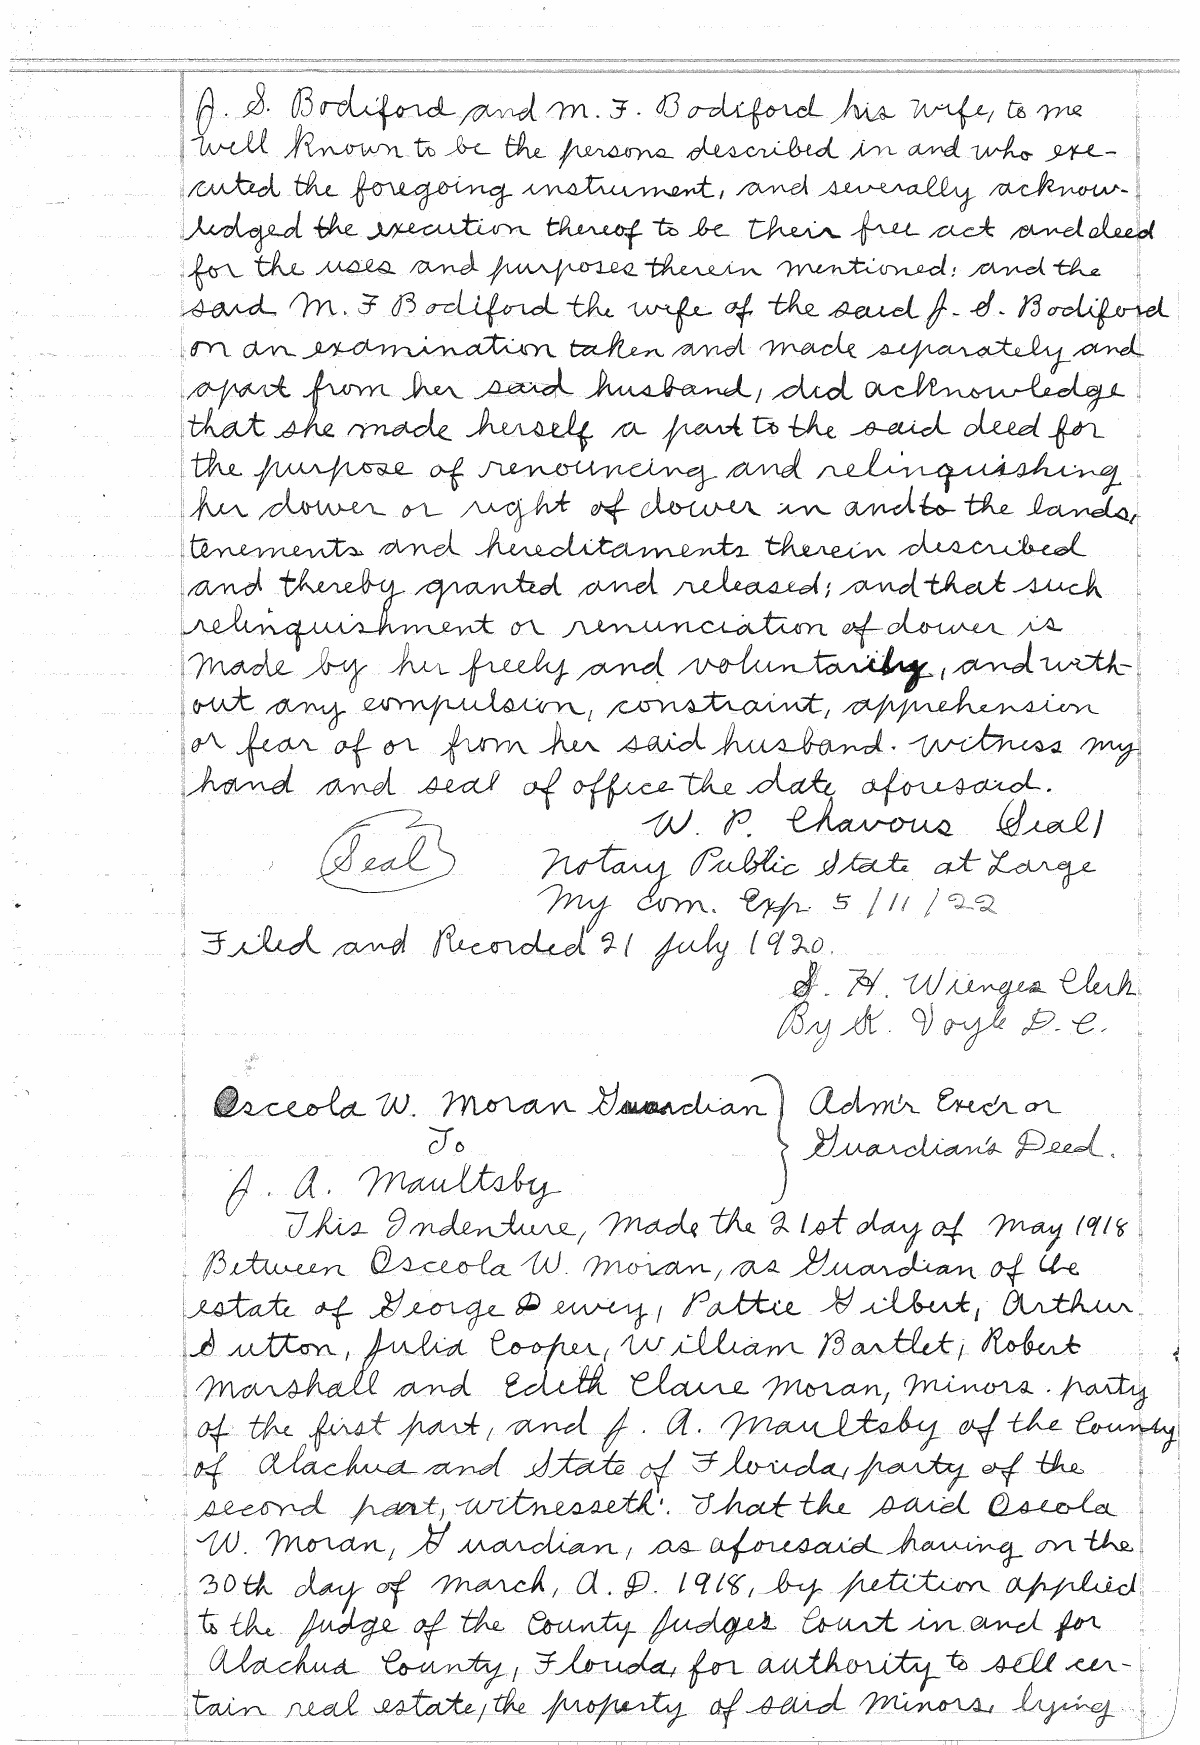 J. S. Bodiford and M. F. Bodiford his wife, to me
well known to be the persons described in and who exe-
cuted the foregoing instrument, and severally acknow-
ledged the execution thereof to be their free act and deed
for the uses and purposes therein mentioned: and the
said M. F Bodiford the wife of the said J. S. Bodiford
on an examination taken and made separately and
apart from her said husband, did acknowledge
that she made herself a part to the said deed for
the purpose of renouncing and relinquishing
her dower or right of dower in and to the lands,
tenements and hereditaments therein described
and thereby granted and released; and that such
relinquishment or renunciation of dower is
made by her freely and voluntarily, and with-
out any compulsion, constraint, apprehension
or fear of or from her said husband. Witness my
hand and seal of office the date aforesaid.
W. P. Chavous (Seal)
(Seal) Notary Public State at Large
My com. Exp. 5/11/22
Filed and Recorded 21 July 1920.
S. H. Wienges Clerk
By K. Voyle D. C.
Osceola W. Moran Guardian } Adm'r Exec'r or
To
Guardian's Deed.
J. A. Maultsby
This Indenture, Made the 21st day of May 1918
Between Osceola W. Moran, as Guardian of the
estate of George Dewey, Pattie Gilbert, Arthur
Sutton, Julia Cooper, William Bartlet, Robert
Marshall and Edith Claire Moran, Minors. party
of the first part, and J. A. Maultsby of the County
of Alachua and State of Florida, party of the
second part, witnesseth: That the said Osceola
W. Moran, Guardian, as aforesaid having on the
30th day of March, A. D. 1918, by petition applied
to the Judge of the County Judges Court in and for
Alachua County, Florida, for authority to sell cer-
tain real estate, the property of said Minors, lying